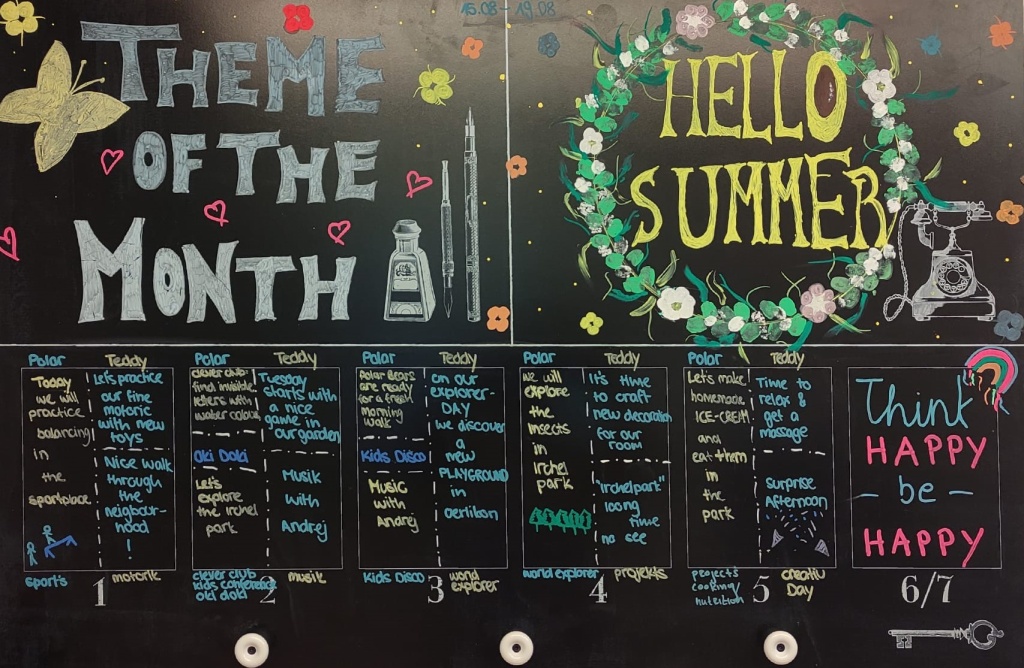 15.08 - 19.08
THEME
OF THE
MONTH
HELLO
SUMMER
Polar
Today
we will
practice
balancing
in
the
sportplace
sports
Teddy
Let's practice
our fine
motoric
with new
toys
Nice walk
through
the
neigbour-
hood
!
motorik
1
Polar
clever club:
find invisible
letters with
water colour
Oki Doki
Let's
explore
the irchel
park
clever club
kids conference
oki doki
Teddy
Tuesday
starts with
a nice
game in
our garden
Musik
with
Andrej
musik
2
Polar
Polar Bears
are ready
for a fresh
morning
walk
Kids Disco
Music
with
Andrej
Kids Disco
Teddy
on our
explorer-
DAY
we discover
a
new
PLAYGROUND
in
oerlikon
world
explorer
3
Polar
we will
explore
the
insects
in
Irchel
park
world explorer
Teddy
It's time
to craft
new decoration
for our
room
"irchelpark"
loong
time
no see
projekts
4
Polar
Let's make
homemade
ICE-CREAM
and
eat them
in
the
park
projects
cooking
nutrition
Teddy
Time to
relax &
get a
massage
Surprise
Afternoon
creativ
Day
5
Think
HAPPY
- be -
HAPPY
6/7